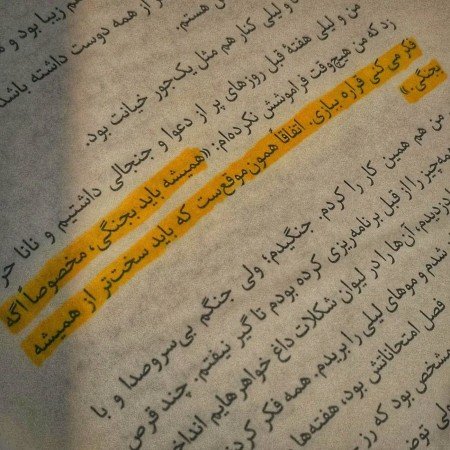 از همه دوست داشته باشد
زیبا بود و
من و لیلی کنار هم مثل یک‌جور خیانت بود.
هستم.
من و لیلی هفتهٔ قبل روزهای پر از دعوا و جنجالی داشتیم و نانا
زد که من هیچ‌وقت فراموشش نکرده‌ام: «همیشه باید بجنگی، مخصوصاً اگه
فکر می‌کنی قراره ببازی. اتفاقاً همون موقع‌ست که باید سخت‌تر از همیشه
بجنگی.»
من هم همین کار را کردم. جنگیدم؛ ولی جنگم بی‌سروصدا و با
را از قبل برنامه‌ریزی کرده بودم تا گیر نیفتم. چند قرص
آن‌ها را در لیوان شکلات داغ خواهرهایم
شدم و موهای لیلی را بریدم. همه فکر
فصل امتحاناتش بود، هفته‌ها
مشخص بود که
ولی